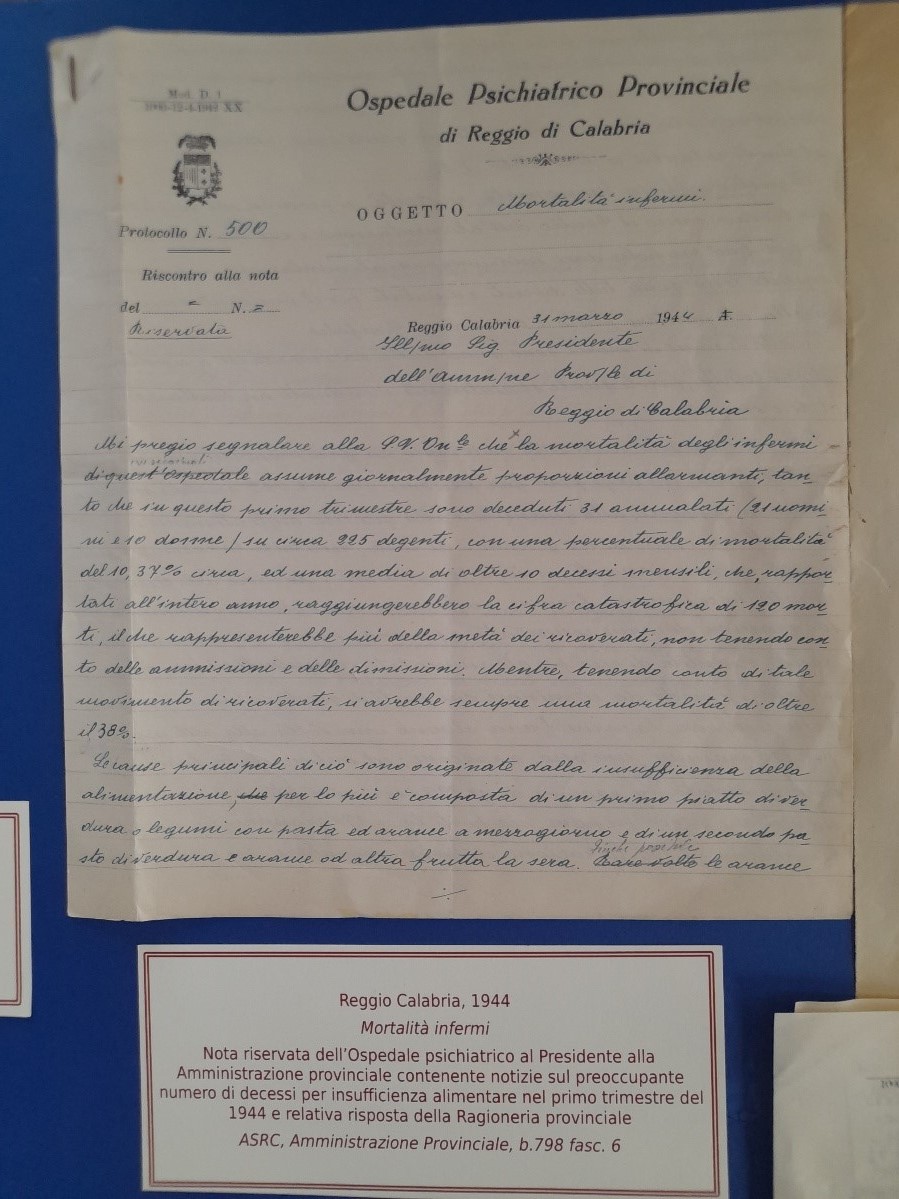 Mod. D. 1
Ospedale Psichiatrico Provinciale
di Reggio di Calabria
OGGETTO Mortalità infermi.
Protocollo N. 500
Riscontro alla nota
del = N. =
Riservata
Reggio Calabria 31 marzo 1944 A.
Ill/mo Sig. Presidente
dell'Amm/ne Prov/le di
Reggio di Calabria
Mi pregio segnalare alla S.V. On.le che la mortalità degli infermi
di quest'Ospedale assume giornalmente proporzioni allarmanti, tan-
to che in questo primo trimestre sono deceduti 31 ammalati (21 uomi
ni e 10 donne) su circa 225 degenti, con una percentuale di mortalità
del 10,37% circa, ed una media di oltre 10 decessi mensili, che, rappor-
tati all'intero anno, raggiungerebbero la cifra catastrofica di 120 mor-
ti, il che rappresenterebbe più della metà dei ricoverati, non tenendo con-
to delle ammissioni e delle dimissioni. Mentre, tenendo conto di tale
movimento di ricoverati, si avrebbe sempre una mortalità di oltre
il 38%.
Le cause principali di ciò sono originate dalla insufficienza della
alimentazione, che per lo più è composta di un primo piatto di ver-
dura o legumi con pasta ed arance a mezzogiorno e di un secondo pa-
sto di verdura e arance od altra frutta la sera. Rare volte le arance
./.
Reggio Calabria, 1944
Mortalità infermi
Nota riservata dell'Ospedale psichiatrico al Presidente alla
Amministrazione provinciale contenente notizie sul preoccupante
numero di decessi per insufficienza alimentare nel primo trimestre del
1944 e relativa risposta della Ragioneria provinciale
ASRC, Amministrazione Provinciale, b.798 fasc. 6